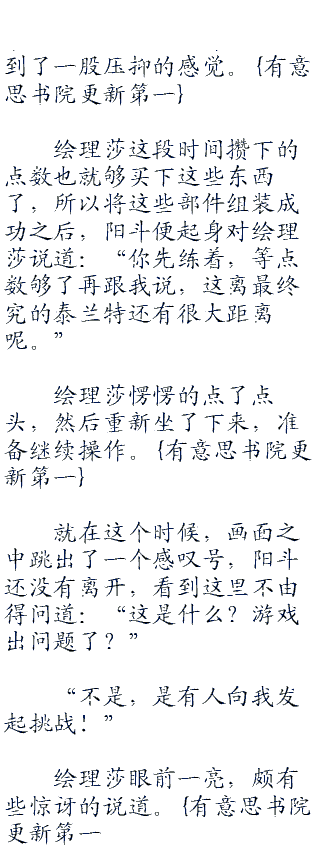 到了一股压抑的感觉。{有意
思书院更新第一}
绘理莎这段时间攒下的
点数也就够买下这些东西
了，所以将这些部件组装成
功之后，阳斗便起身对绘理
莎说道：“你先练着，等点
数够了再跟我说，这离最终
究的泰兰特还有很大距离
呢。”
绘理莎愣愣的点了点
头，然后重新坐了下来，准
备继续操作。{有意思书院更
新第一}
就在这个时候，画面之
中跳出了一个感叹号，阳斗
还没有离开，看到这里不由
得问道：“这是什么？游戏
出问题了？”
“不是，是有人向我发
起挑战！”
绘理莎眼前一亮，颇有
些惊讶的说道。{有意思书院
更新第一